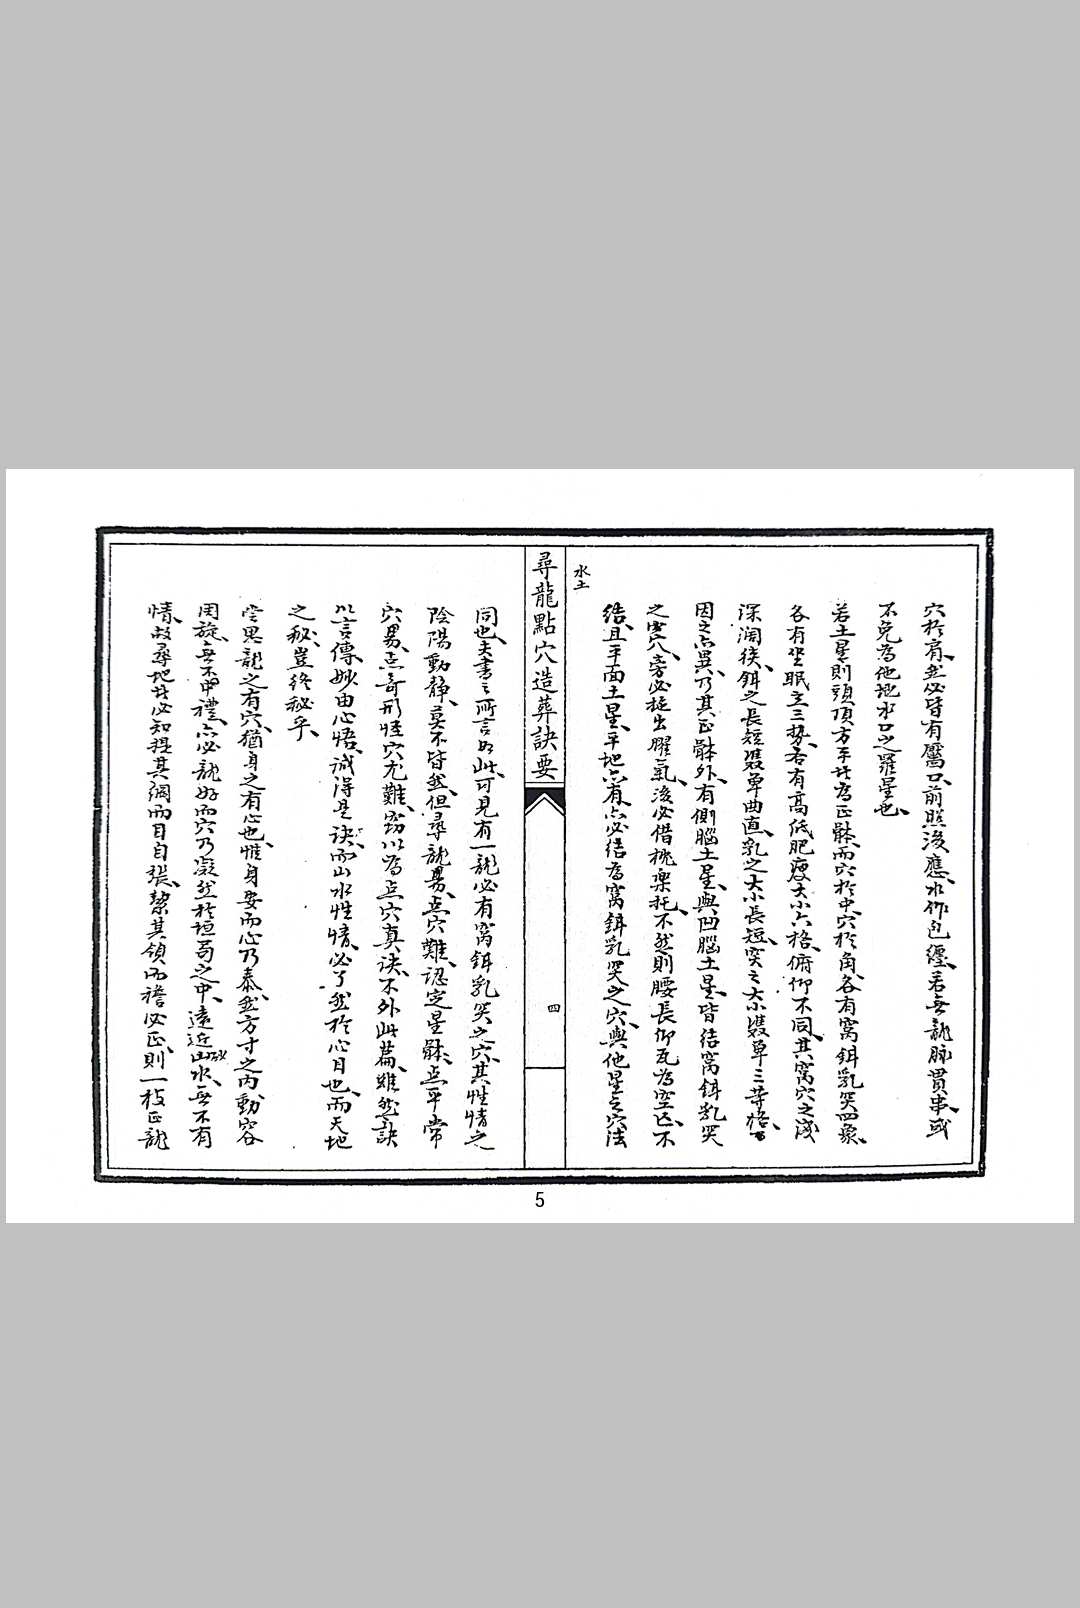 水土
穴於肩、然必皆有鬼、前照後應、水作包纏、若無龍脉貫串、或
不免為他地水口之羅星也、
若土星則頭頂方平、此為正體、而穴於中、穴於角、各有窩鉗乳突四象、
各有坐眠立三勢、各有高低肥瘦大小六格、俯仰不同、其窩穴之淺
深濶狹、鉗之長短雙單曲直、乳之大小長短、突之大小雙單三等格、
因之亦異、乃其正體外、有側腦土星、與凹腦土星、皆結窩鉗乳突
之穴、旁必拖出曜氣、後必借樂托、不然則腰長仰瓦為空亡、不
結、且平面土星、平地亦有、亦必結為窩鉗乳突之穴、與他星之穴法
尋龍點穴造葬訣要
四
同也、夫書之所言如此、可見有一龍必有窩鉗乳突之穴、其性情之
陰陽動靜、莫不皆然、但尋龍易、点穴難、認定星體、点平常
穴易、点奇形怪穴尤難、竊以為点穴真訣、不外此篇、雖然、訣
以言傳、妙由心悟、誠得是訣、而山水性情、必了然於心目也、而天地
之秘、豈終秘乎、
嘗思龍之有穴、猶身之有心也、惟身安而心乃泰、然方寸之內、動容
周旋、無不中禮、亦必龍好而穴乃凝、然於垣局之中、遠近山水、無不有
砂
情、故尋地者必知提其綱而目自張、挈其領而襜必正、則一枝正龍
5